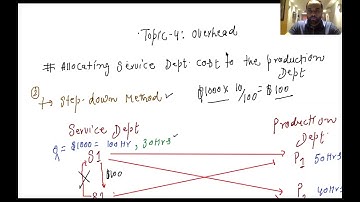 Topic-4: Overhead
# Allocating Service Dept. cost to the production Dept
② → Step-down Method ✓ $1000 x 10/100 = $100
Service Dept
Production Dept.
$1000 = 100 Hr, 30Hrs ✓
S1
P1 50Hrs
$100